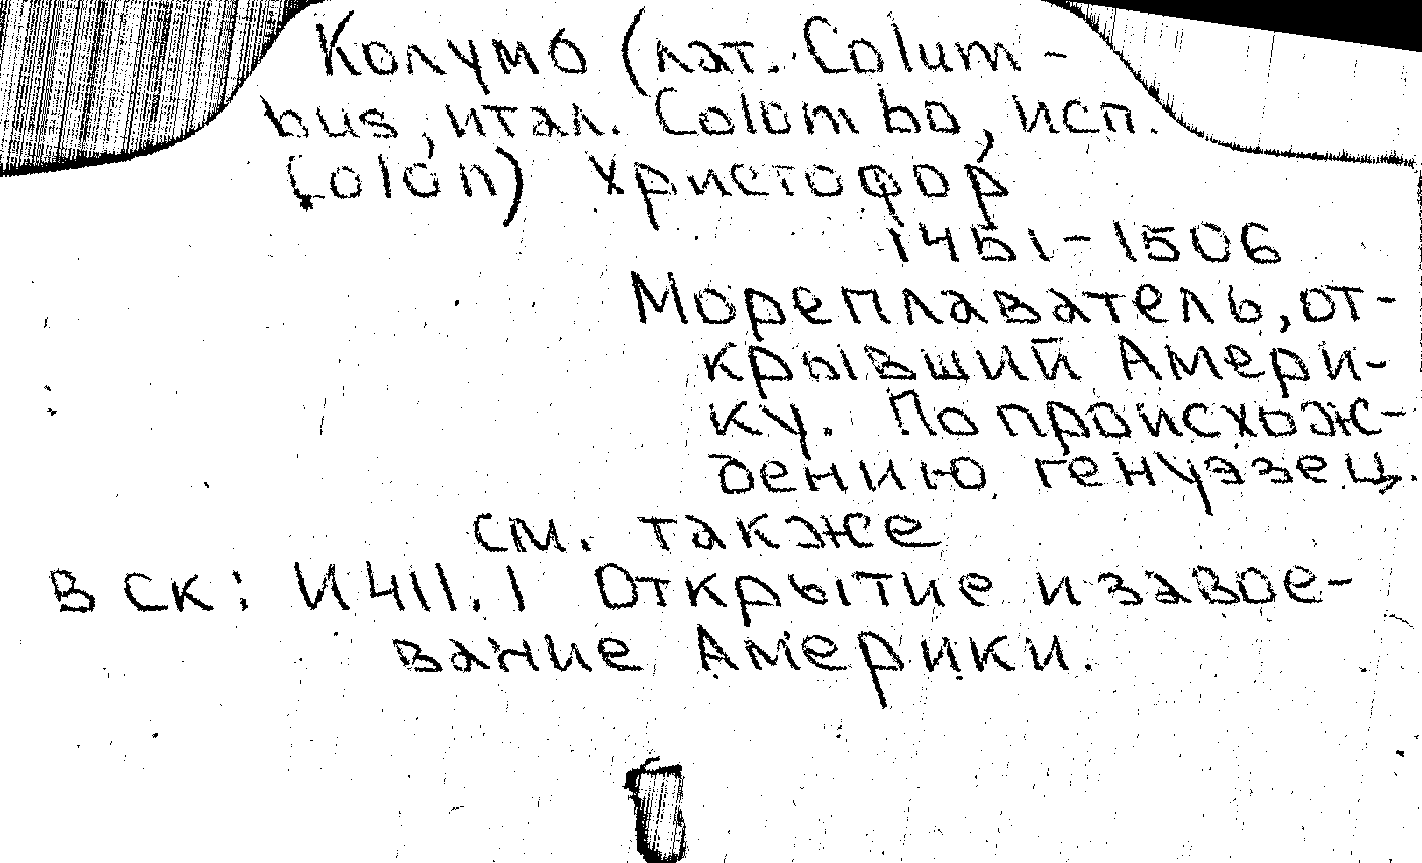 Колумб (лат. Colum-
bus, итал. Colombo, исп.
Colón) Христофор
1451-1506
Мореплаватель, от-
крывший Амери-
ку. По происхож-
дению генуэзец.
см. также
В СК: И411.1 Открытие и завое-
вание Америки.